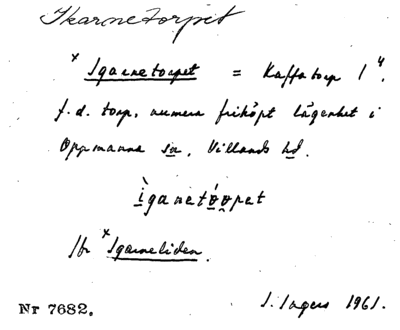 Ikarnetorpet
x Igarnetorpet = Kaffatorp 1⁴.
f.d. torp, numera friköpt lägenhet i
Oppmanna sn, Villands hd.
ìganetó̱o̭pet
Jfr x Igarneliden.
Nr 7682. I. Ingers 1961.